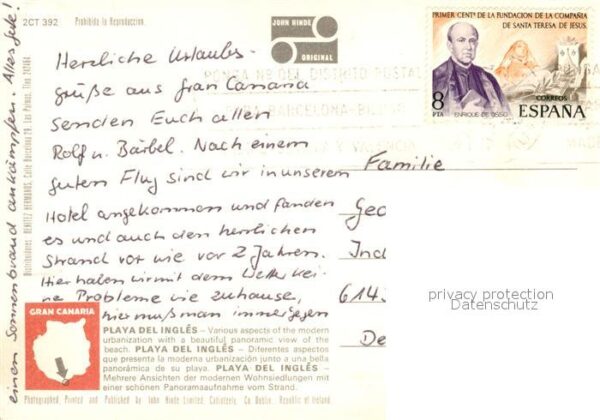 2CT 392 Prohibida la Reproduccion.
JOHN HINDE
ORIGINAL
PRIMER CENTº DE LA FUNDACION DE LA COMPAÑIA
DE SANTA TERESA DE JESUS.
8
PTA
ENRIQUE DE OSSO
CORREOS
ESPAÑA
PONGA Nº DEL DISTRITO POSTAL
BARCELONA-BILBAO
Herzliche Urlaubs-
grüße aus Gran Canaria
senden Euch allen
Rolf u. Bärbel. Nach einem
guten Flug sind wir in unserem
Hotel angekommen und fanden
es und auch den herrlichen
Strand vor wie vor 2 Jahren.
Hier haben wir mit dem Wetter kei-
ne Probleme wie zuhause,
hier muß man immer gegen
einen Sonnenbrand ankämpfen. Alles Gute!
Familie
Geo
Ind
614
De
Distribuidores: BENITEZ HERMANOS, Calle Nacional 29, Las Palmas,
GRAN CANARIA
PLAYA DEL INGLÉS – Various aspects of the modern
urbanization with a beautiful panoramic view of the
beach. PLAYA DEL INGLÉS – Diferentes aspectos
que presenta la moderna urbanización junto a una bella
panorámica de su playa. PLAYA DEL INGLÉS –
Mehrere Ansichten der modernen Wohnsiedlungen mit
einer schönen Panoramaaufnahme vom Strand.
Photographed, Printed and Published by John Hinde Limited, Cabinteely, Co Dublin, Republic of Ireland
privacy protection
Datenschutz